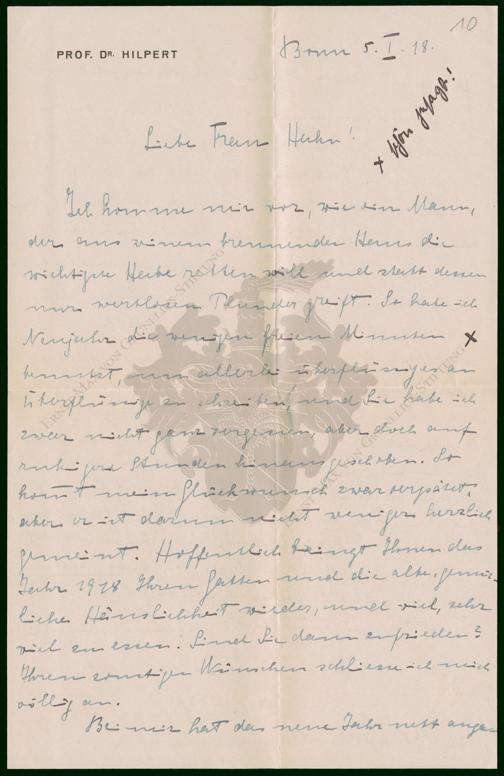 10
PROF. DR. HILPERT
Bonn 5. I. 18.
x schön gesagt!
Liebe Frau Huhn!
Ich komme mir vor, wie ein Mann,
der aus einem brennenden Haus die
wichtigste Habe retten will und statt dessen
nur wertlosen Plunder greift. So habe ich
Neujahr die wenigen freien Minuten x
benutzt, um allerlei überflüssiges an
Überflüssige zu schreiben, und Sie habe ich
zwar nicht ganz vergessen, aber doch auf
ruhigere Stunden hinausgeschoben. So
kommt mein Glückwunsch zwar verspätet,
aber er ist darum nicht weniger herzlich
gemeint. Hoffentlich bringt Ihnen das
Jahr 1918 Ihren Gatten und die alte, gemüt-
liche Häuslichkeit wieder, und viel, sehr
viel zu essen. Sind Sie dann zufrieden?
Ihren sonstigen Wünschen schliesse ich mich
völlig an.
Bei mir hat das neue Jahr nett angefan-
ERNST MAX VON GRUNELIUS-STIFTUNG
ERNST MAX VON GRUNELIUS-STIFTUNG